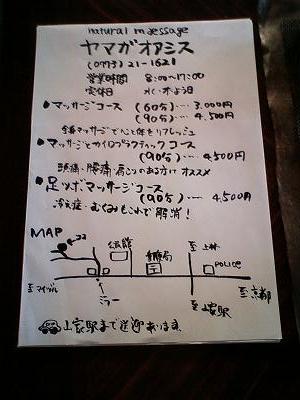 natural massage
ヤマガオアシス
(0773) 21-1621
営業時間 8:00〜17:00
定休日 水・木よう日
●マッサージコース (60分)… 3,000円
(90分)… 4,500円
全身マッサージで心と体をリフレッシュ
●マッサージとカイロプラクティックコース
(90分)… 4,500円
頭痛・腰痛・肩こりのある方にオススメ
●足ツボマッサージコース
(90分)… 4,500円
冷え症・むくみもこれで解消!
MAP
ココ
公民館
郵便局
至上林
POLICE
至マイヅル
ミラー
至山家駅
至京都
山家駅まで送迎あります。